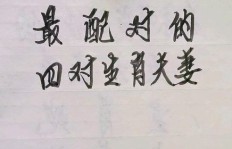 最配对的
四对生肖夫妻